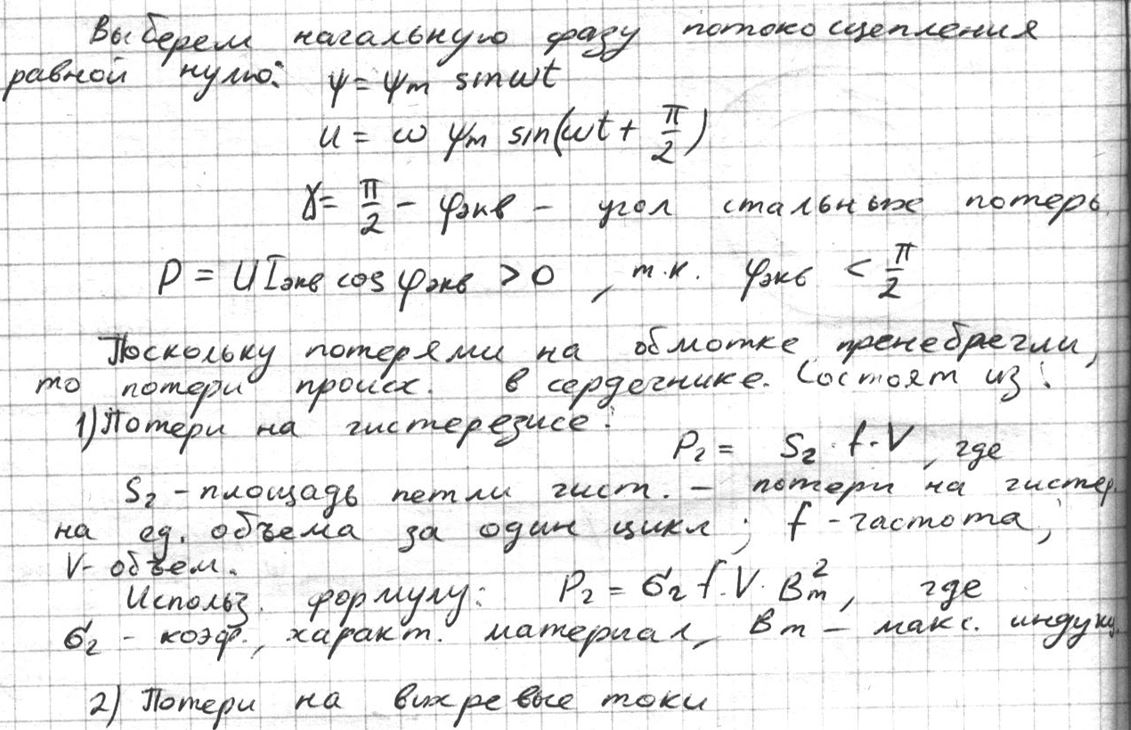 Выберем начальную фазу потокосцепления
равной нулю: ψ = ψm sinωt
u = ω ψm sin(ωt + π/2)
γ = π/2 - φэкв - угол стальных потерь
P = UIэкв cos φэкв > 0, т.к. φэкв < π/2
Поскольку потерями на обмотке пренебрегли,
то потери происх. в сердечнике. Состоят из:
1) Потери на гистерезисе:
Pг = Sг · f · V, где
Sг - площадь петли гист. - потери на гистер.
на ед. объема за один цикл; f - частота;
V - объем.
Использ. формулу: Pг = σг f · V · Bm², где
σг - коэф., характ. материал, Bm - макс. индукц.
2) Потери на вихревые токи